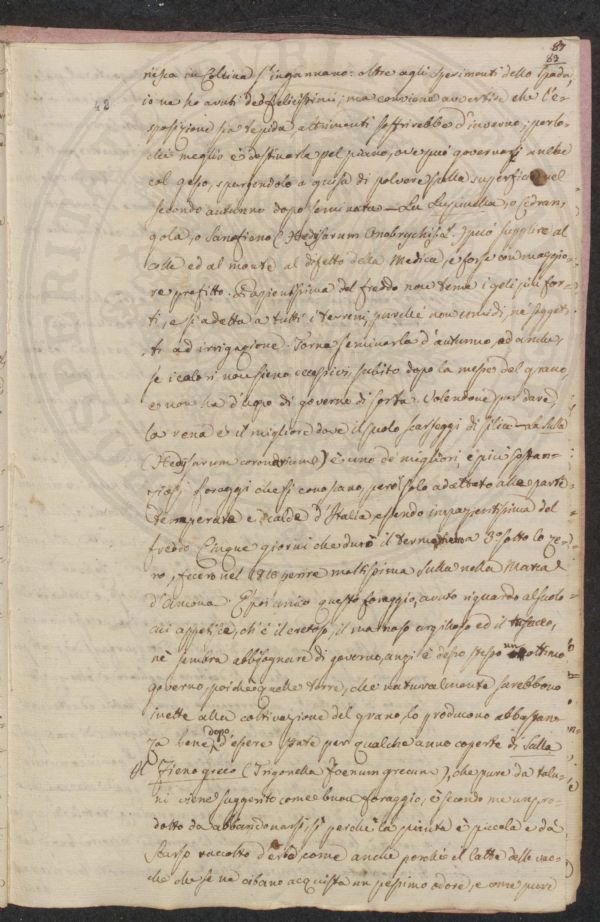 87
83
48
riesca in Collina s'ingannano: oltre agli sperimenti dello Spada,
io ne ho avuti de' felicissimi; ma conviene avvertire che l'e-
sposizione sia tepida, altrimenti soffrirebbe d'inverno; perlo-
chè meglio è destinarla pel piano, ove può governarsi anche
col gesso, spargendolo a guisa di polvere sulla superficie nel
secondo autunno dopo seminata — La Lupinella, o cedran-
gola, o Sanofieno (Hedisarum Onobrychis) può supplire al
colle ed al monte al difetto della Medica, e forse con maggio-
re profitto. Pazientissima del freddo non teme i geli più for-
ti, e si adatta a tutti i terreni, purchè non umidi, nè sogget-
ti ad irrigazione. Torna seminarla d'autunno, ed anche
se i calori non sieno eccessivi, subito dopo la messe del grano
e non ha d'uopo di governo di sorta. Volendone pur dare,
la rena è il migliore dove il suolo scarseggi di silice — La Sulla
(Hedisarum coronarium) è uno de' migliori, e più sostan-
ziosi foraggi che si conoscano, però solo adattato alle parti
temperate e calde d'Italia essendo impazientissima del
freddo. Cinque giorni che durò il termometro a 3.° sotto lo ze-
ro, fecero nel 1810 perire moltissima Sulla nella Marca
d'Ancona. È poi unico questo foraggio, avuto riguardo al suolo
cui appetisce, ch'è il cretoso, il marnoso argilloso ed il tufaceo,
nè sembra abbisognare di governo, anzi è desso stesso un ottimo
governo, poichè quelle terre, che naturalmente sarebbono
inette alla coltivazione del grano lo producono abbastan-
za bene dopo d'essere state per qualche anno coperte di Sulla
Il Fieno greco (Trigonella Foenum grecum), che pure da talu-
ni viene suggerito come buon foraggio, è secondo me un pro-
dotto da abbandonarsi sì perchè la pianta è piccola e dà
scarso raccolto d'erba, come anche perchè il latte delle vac-
che che se ne cibano acquista un pessimo odore, e come pure